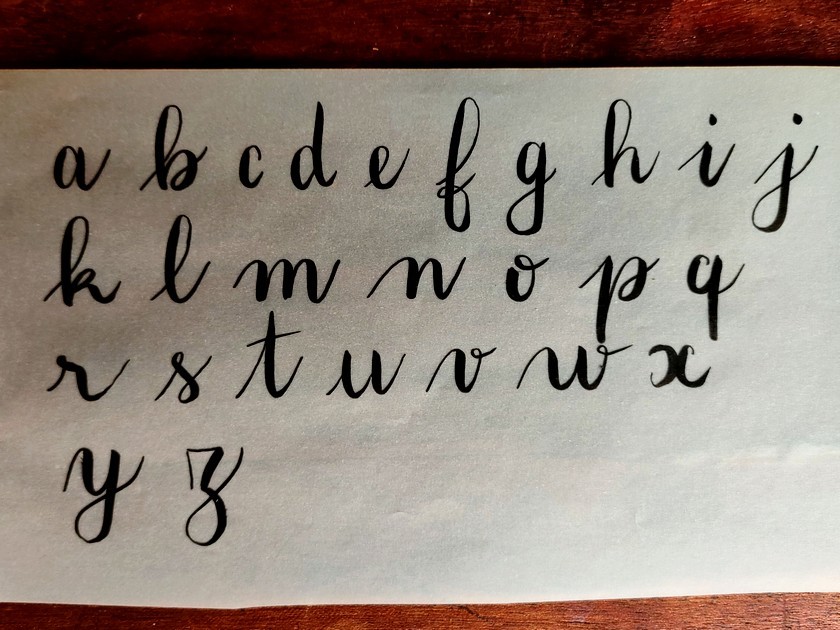 a b c d e f g h i j
k l m n o p q
r s t u v w x
y z